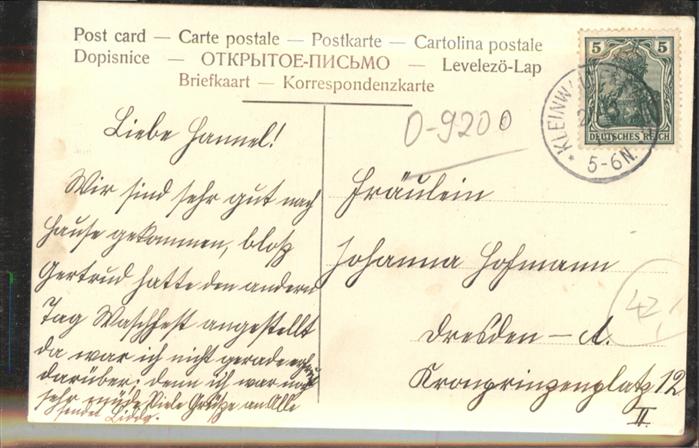 Post card — Carte postale — Postkarte — Cartolina postale
Dopisnice — ОТКРЫТОЕ-ПИСЬМО — Levelező-Lap
Briefkaart — Korrespondenzkarte
5 5
DEUTSCHES REICH
* KLEINW
5-6N.
0-9200
Liebe Hannel!
Wir sind sehr gut nach
Hause gekommen, blosz
Gertrud hatte den andern
Tag Waschfest angestellt
da war ich nicht gerade
darüber: denn ich war
sehr müde Viele Grüsze an Alle
sendet
Fräulein
Johanna Hofmann
Dresden – A.
Kronprinzenplatz 12
II.
42